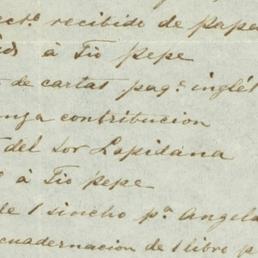 recibido de pape
à Tio Pepe
de cartas pag.ˢ inglés
contribucion
del Sor Lapidana
à Tio Pepe
de 1 sincho p.ᵃ Angela
cuadernacion de 1 libro p